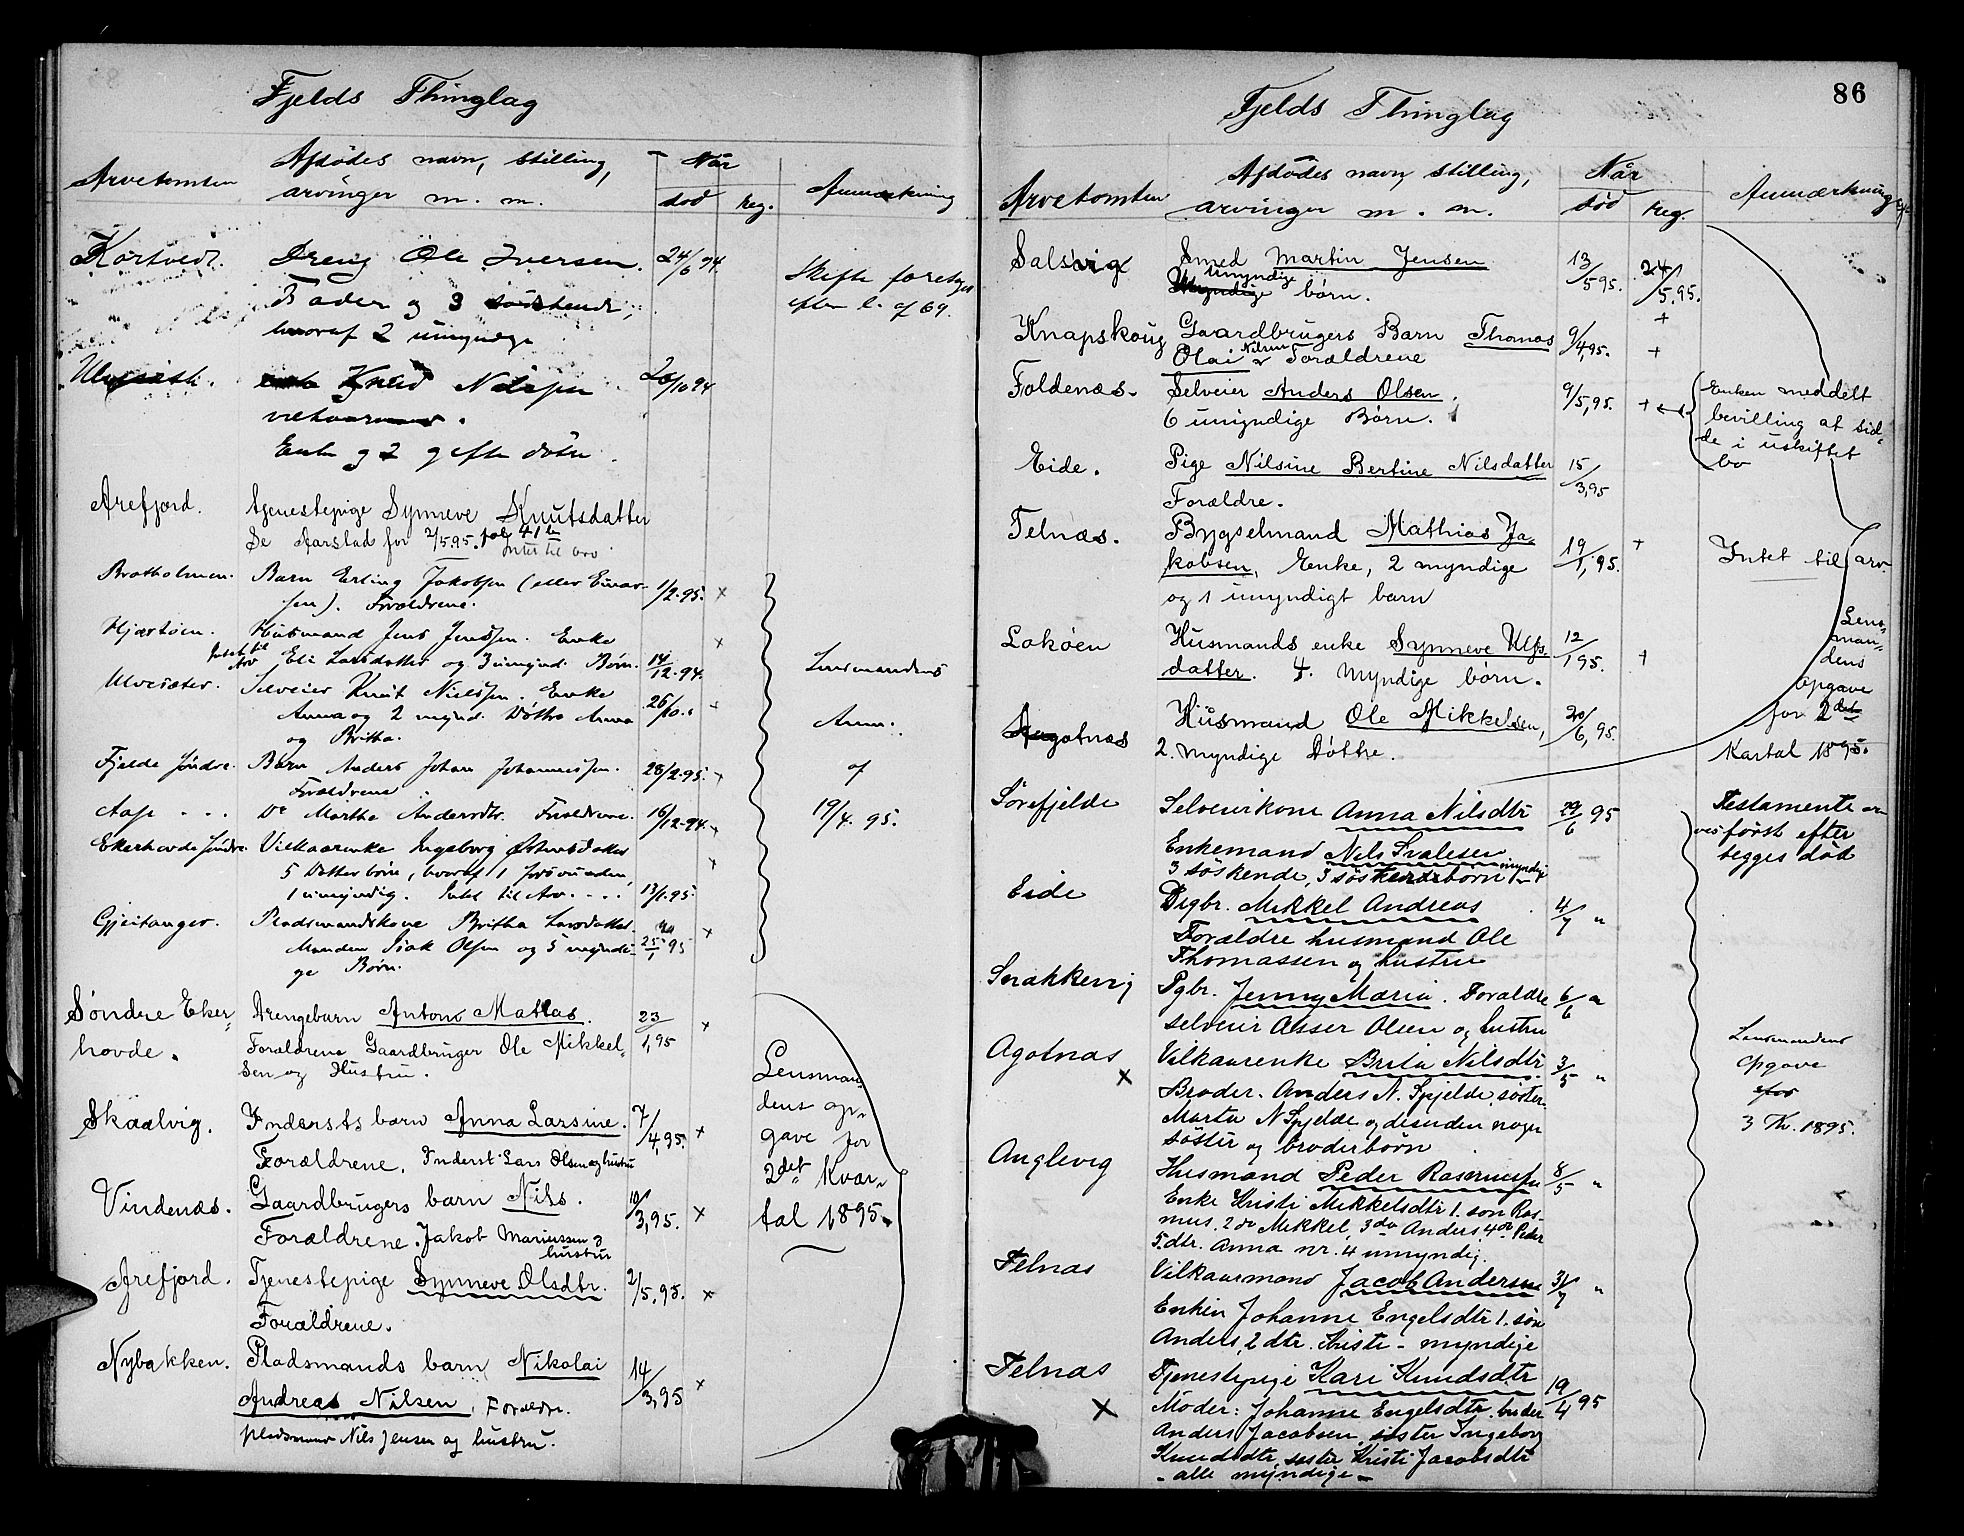 Fjelds Thinglag
Arvetomten
Afdødes navn, stilling,
arvinger m. m.
Når
død
reg.
Anmærkning
Kørtvedt.
Dreng Ole Iversen.
24/6 94.
Fader og 3 sødskende,
hvoraf 2 umyndige
Skifte foretages
efter l. of 69.
Knud Nilssen
20/10 94
Enke og 2 gifte døtre.
Arefjord.
Tjenestepige Synneve Knutsdatter
Se Aarstad for 2/5 95.
Intet til arv
Bratholmen.
Barn Erling Jakobsen (eller Einar-
sen). Forældrene.
1/2.95.
x
Hjærtøen.
Husmand Jens Jenssen. Enke
Intet til
Arv
Eli Larsdatter og 3 umynd. Børn.
14/12.94.
x
Ulvesæter.
Selveier Knut Nielssen. Enke
Anna og 2 mynd. Døtre Anna
og Britha.
26/10. "
Fjelde Indre.
Barn Anders Johan Johannessen.
Forældrene
28/2.95.
Aase
Do Martha Andersdtr. Forældrene.
16/12.94.
Ekerhovde Indre.
Vilkaarenke Ingeborg
5 Døtterbørn, hvoraf 1
1 umyndig. Intet til Arv.
13/1.95
x
Gjeitanger.
Pladsmandskone Britha Larsdatter.
Manden Isak Olsen og 5 myndi-
ge Børn.
25/1 95
x
Lensmandens
Anm.
af
19/4. 95.
Søndre Eker-
hovde.
Drengebarn Anton Matias.
Forældrene Gaardbruger Ole Mikkel-
sen og Hustru.
23/1, 95
x
Skaalvig.
Inderstsbarn Anna Larsine.
Forældrene. Inderst Lars Olsen og hustru
7/4, 95.
x
Vindenæs.
Gaardbrugers barn Nils.
Forældrene. Jakob Mariussen &
hustru
10/3, 95.
x
Arefjord.
Tjenestepige Synneve Olsdtr.
Forældrene.
2/5, 95.
x
Nybakken.
Pladsmands barn Nikolai
Andreas Nilsen, Forældre.
pladsmand Nils Jensen og hustru.
14/3, 95
x
Lensman-
dens op-
gave for
2det Kvar-
tal 1895.
86
Fjelds Thinglag
Arvetomten
Afdødes navn, stilling,
arvinger m. m.
Når
død
reg.
Anmærkning
Salsvig
Smed Martin Jensen
umyndige
børn.
13/5 95.
24/5, 95.
+
Knapskoug
Gaardbrugers Barn Thomas
Olai Nilsen Forældrene
9/4, 95.
+
Foldenæs.
Selveier Anders Olsen.
6 umyndige Børn.
9/5, 95.
+
Enken meddelt
bevilling at sid-
de i uskiftet
bo
Eide.
Pige Nilsine Bertine Nilsdatter
Forældre.
15/3, 95
Telnæs.
Bygselmand Mathias Ja-
kobsen, Enke, 2 myndige
og 1 umyndigt barn
19/1, 95.
+
Intet til arv.
Lokøen
Husmands enke Synneve Ulfs-
datter. 4 myndige børn.
12/1 95.
+
Agotnæs
Husmand Ole Mikkelsen,
2 myndige Døttre.
20/6, 95.
Lens-
man-
dens
Opgave
for 2det
Kartal 1895.
Sørefjelde
Selveierkone Anna Nilsdtr
Enkemand Nils Svalesen
3 söskende, 3 söskendebörn myndige
29/6 95
Testamente ar-
ves först efter
begges död
Eide
Drgbr. Mikkel Andreas
Forældre husmand Ole
Thomassen og hustru
4/7 "
Snekkevig
Pgbr. Jenny Maria. Forældre
selveier Asser Olsen og hustru
6/6 "
Agotnæs
x
Vilkaarenke Brita Nilsdtr
Broder. Anders N. Spjelde, söster
Marta N Spjelde og desuden nogle
söster og broderbörn
3/5 "
Lensmandens
Opgave
for
3 Kv. 1895.
Anglevig
Husmand Peder Rasmussen
Enke Kristi Mikkelsdtr 1. sön Ras-
mus. 2 do Mikkel, 3 do Anders. 4 do Peder
5. dtr. Anna nr. 4 umyndig.
8/5 "
Telnæs
Vilkaarmand Jacob Andersen
Enken Johanne Engelsdtr 1. sön
Anders, 2 dtr. Kristi - myndige
31/7 "
Telnæs
x
Tjenestepige Kari Knudsdtr
Moder: Johanne Engelsdtr. broder
Anders Jacobsen, söster Ingeborg
Knudsdtr, söster Kristi Jacobsdtr
- alle myndige -
19/4 95